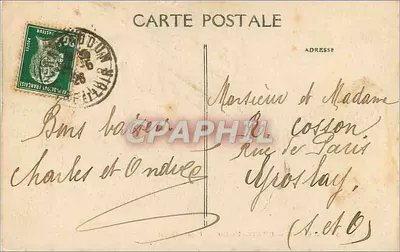 CARTE POSTALE
ADRESSE
Bons baisers
Charles et
Monsieur et Madame
R. Cosson
Rue de Paris
(S. et O)
CPAPHIL